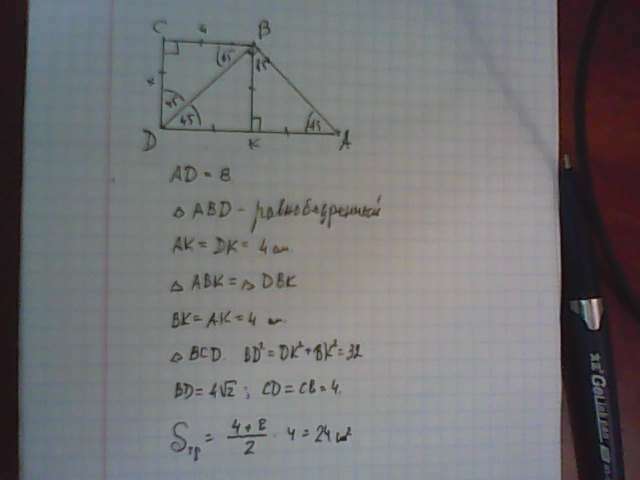 C 4 B
45 45
4
45
45 45
D K A
AD = 8
△ ABD - равнобедренный
AK = DK = 4 см.
△ ABK = △ DBK
BK = AK = 4 см.
△ BCD. BD² = DK² + BK² = 32
BD = 4√2 ; CD = CB = 4.
Sтр = 4 + 8 / 2 · 4 = 24 см²